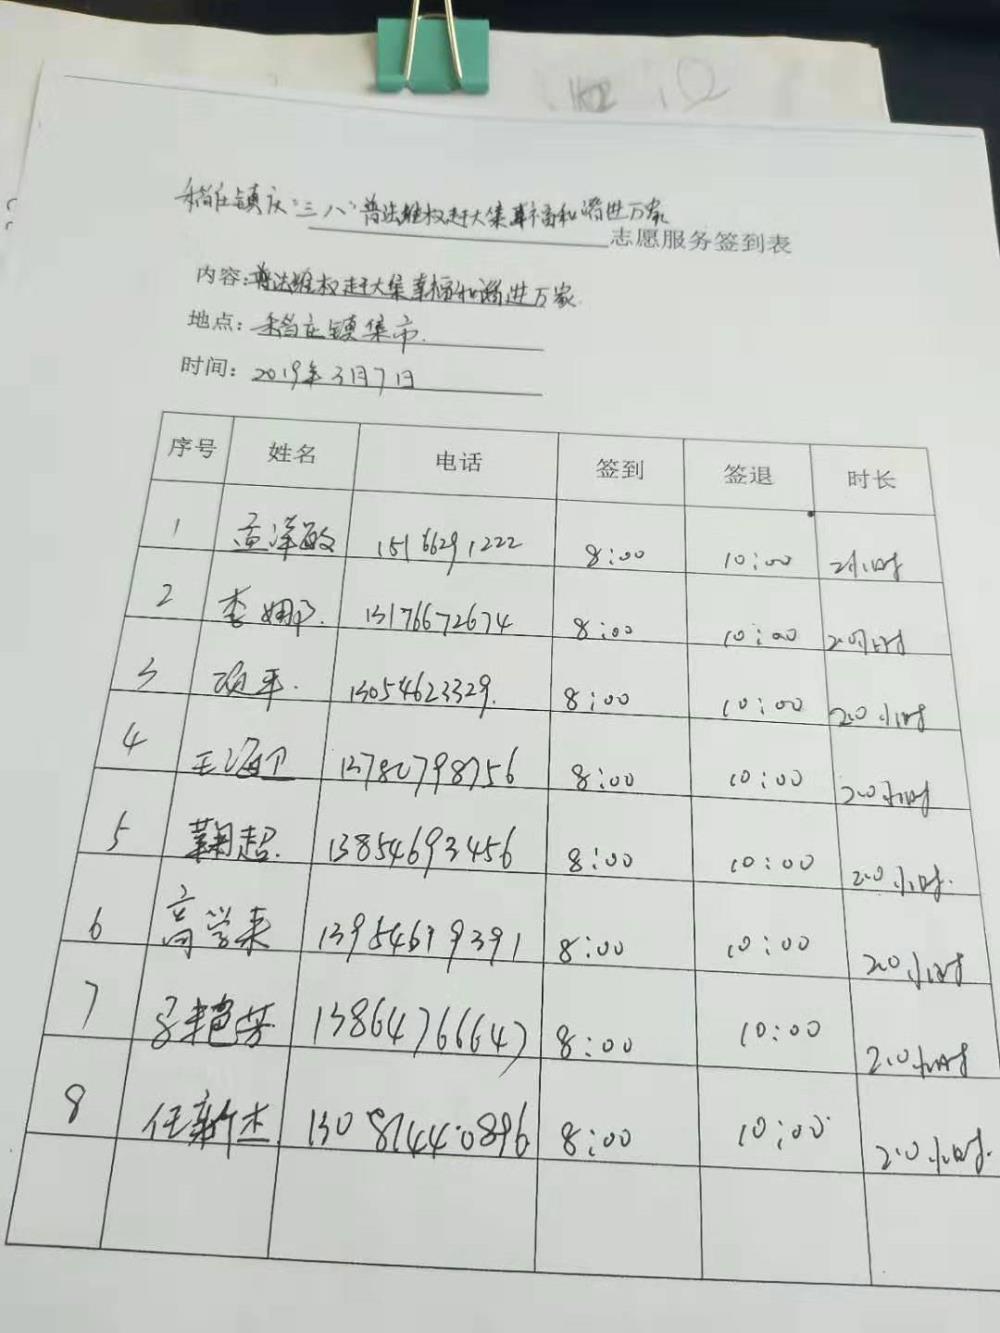 稻庄镇庆"三八"普法维权赶大集幸福和谐进万家
志愿服务签到表
内容:普法维权赶大集幸福和谐进万家.
地点:稻庄镇集市.
时间:2019年3月7日
序号 姓名 电话 签到 签退 时长
1 孟泽敏 15166291222 8:00 10:00 2小时
2 李娜. 13176672674 8:00 10:00 2.0小时
3 项平. 13054623329. 8:00 10:00 2.0小时
4 王海卫 13780798756 8:00 10:00 2.0小时
5 鞠超. 13854693456 8:00 10:00 2.0小时.
6 高学来 13954619391 8:00 10:00 2.0小时
7 艳芳 13864766647 8:00 10:00 2.0小时
8 任新杰 8:00 10:00 2.0小时.